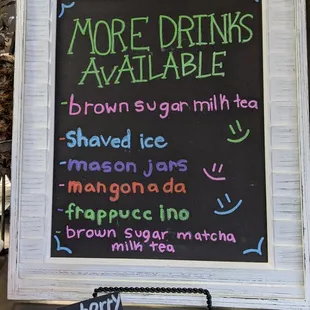 MORE DRINKS
AVAILABLE
-brown sugar milk tea
-Shaved ice
-mason jars
-mangonada
-frappuccino
-brown sugar matcha
milk tea